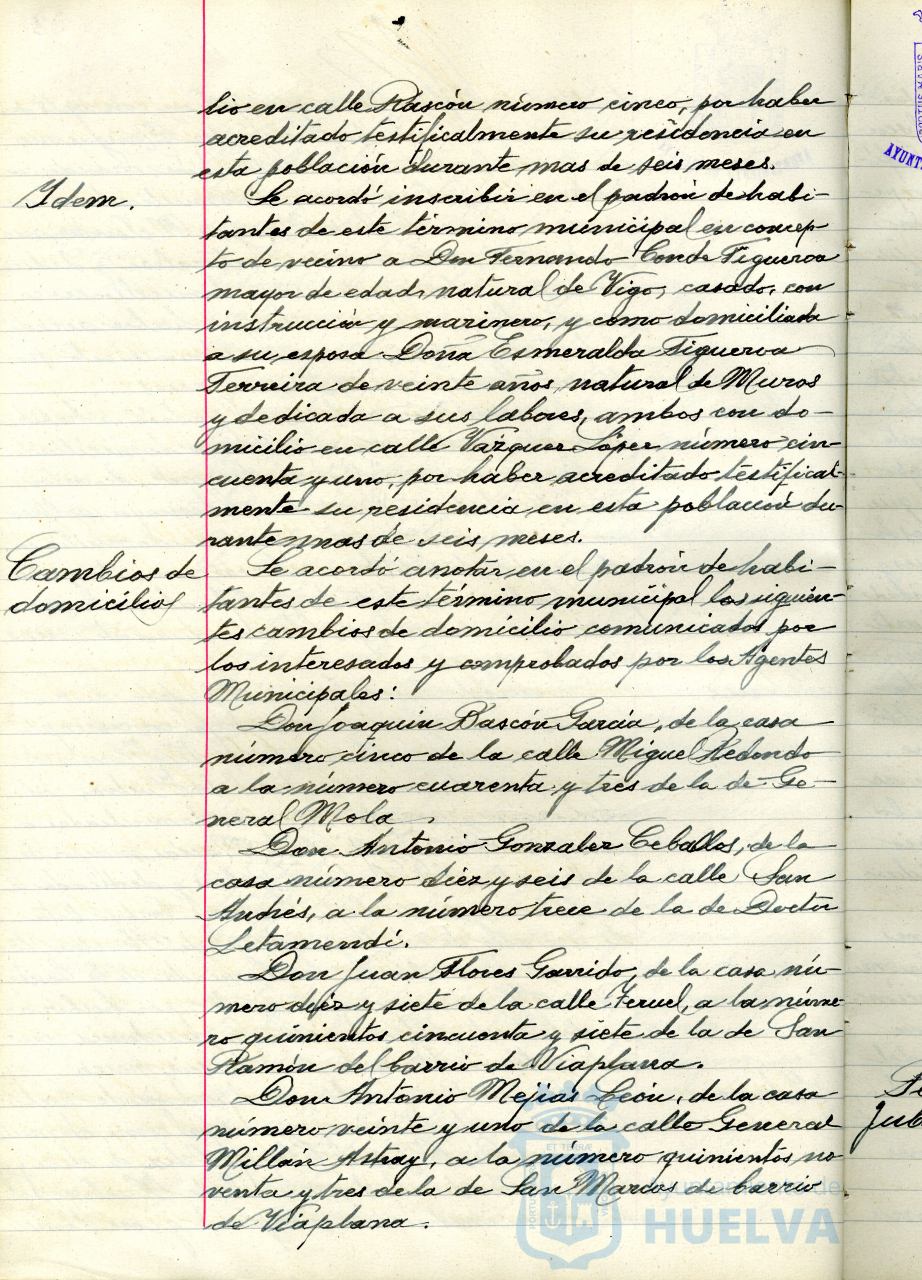 lio en calle Rascón número cinco, por haber
acreditado testificalmente su residencia en
esta población durante mas de seis meses.
Idem.
Se acordó inscribir en el padrón de habi-
tantes de este término municipal en concep-
to de vecino a Don Fernando Conde Figueroa
mayor de edad, natural de Vigo, casado, con
instrucción y marinero, y como domiciliada
a su esposa Doña Esmeralda Figueroa
Ferreira de veinte años, natural de Muros
y dedicada a sus labores, ambos con do-
micilio en calle Vazquez López número cin-
cuenta y uno, por haber acreditado testifical-
mente su residencia en esta población du-
rante mas de seis meses.
Cambios de
domicilio
Se acordó anotar en el padrón de habi-
tantes de este término municipal los siguien-
tes cambios de domicilio comunicados por
los interesados y comprobados por los Agentes
Municipales:
Don Joaquin Bascón García, de la casa
número cinco de la calle Miguel Redondo
a la número cuarenta y tres de la de Ge-
neral Mola.
Don Antonio Gonzalez Ceballos, de la
casa número diez y seis de la calle San
Andrés, a la número trece de la de Doctor
Letamendi.
Don Juan Flores Garrido, de la casa nú-
mero diez y siete de la calle Teruel, a la núme-
ro quinientos cincuenta y siete de la de San
Ramón del barrio de Viaplana.
Don Antonio Mejias León, de la casa
número veinte y uno de la calle General
Millán Astray, a la número quinientos no
venta y tres de la de San Marcos de barrio
de Viaplana.
HUELVA